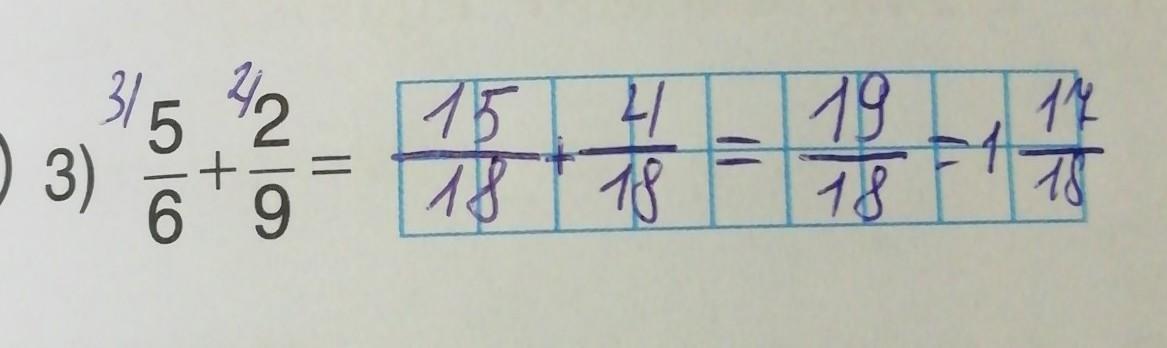 3) ³⁄5/6 + ²⁄2/9 = 15/18 + 4/18 = 19/18 = 1 17/18